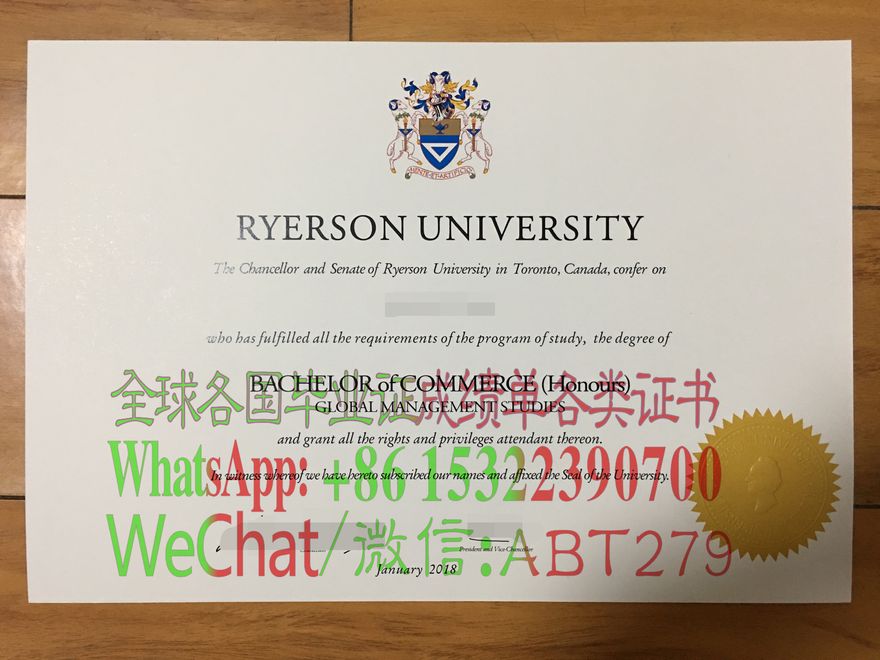 MENTE ET ARTIFICIO
RYERSON UNIVERSITY
The Chancellor and Senate of Ryerson University in Toronto, Canada, confer on
who has fulfilled all the requirements of the program of study, the degree of
全球各国毕业证成绩单各类证书
BACHELOR of COMMERCE (Honours)
GLOBAL MANAGEMENT STUDIES
and grant all the rights and privileges attendant thereon.
WhatsApp: +86 15322390700
In witness whereof we have hereto subscribed our names and affixed the Seal of the University.
WeChat/微信:ABT279
President and Vice-Chancellor
January 2018